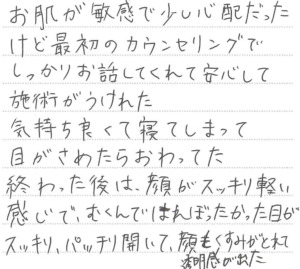 お肌が敏感で少し心配だった
けど最初のカウンセリングで
しっかりお話してくれて安心して
施術がうけれた
気持ち良くて寝てしまって
目がさめたらおわってた
終わった後は、顔がスッキリ軽い
感じで、むくんではればったかった目が
スッキリ、パッチリ開いて、顔もくすみがとれて
透明感が出た